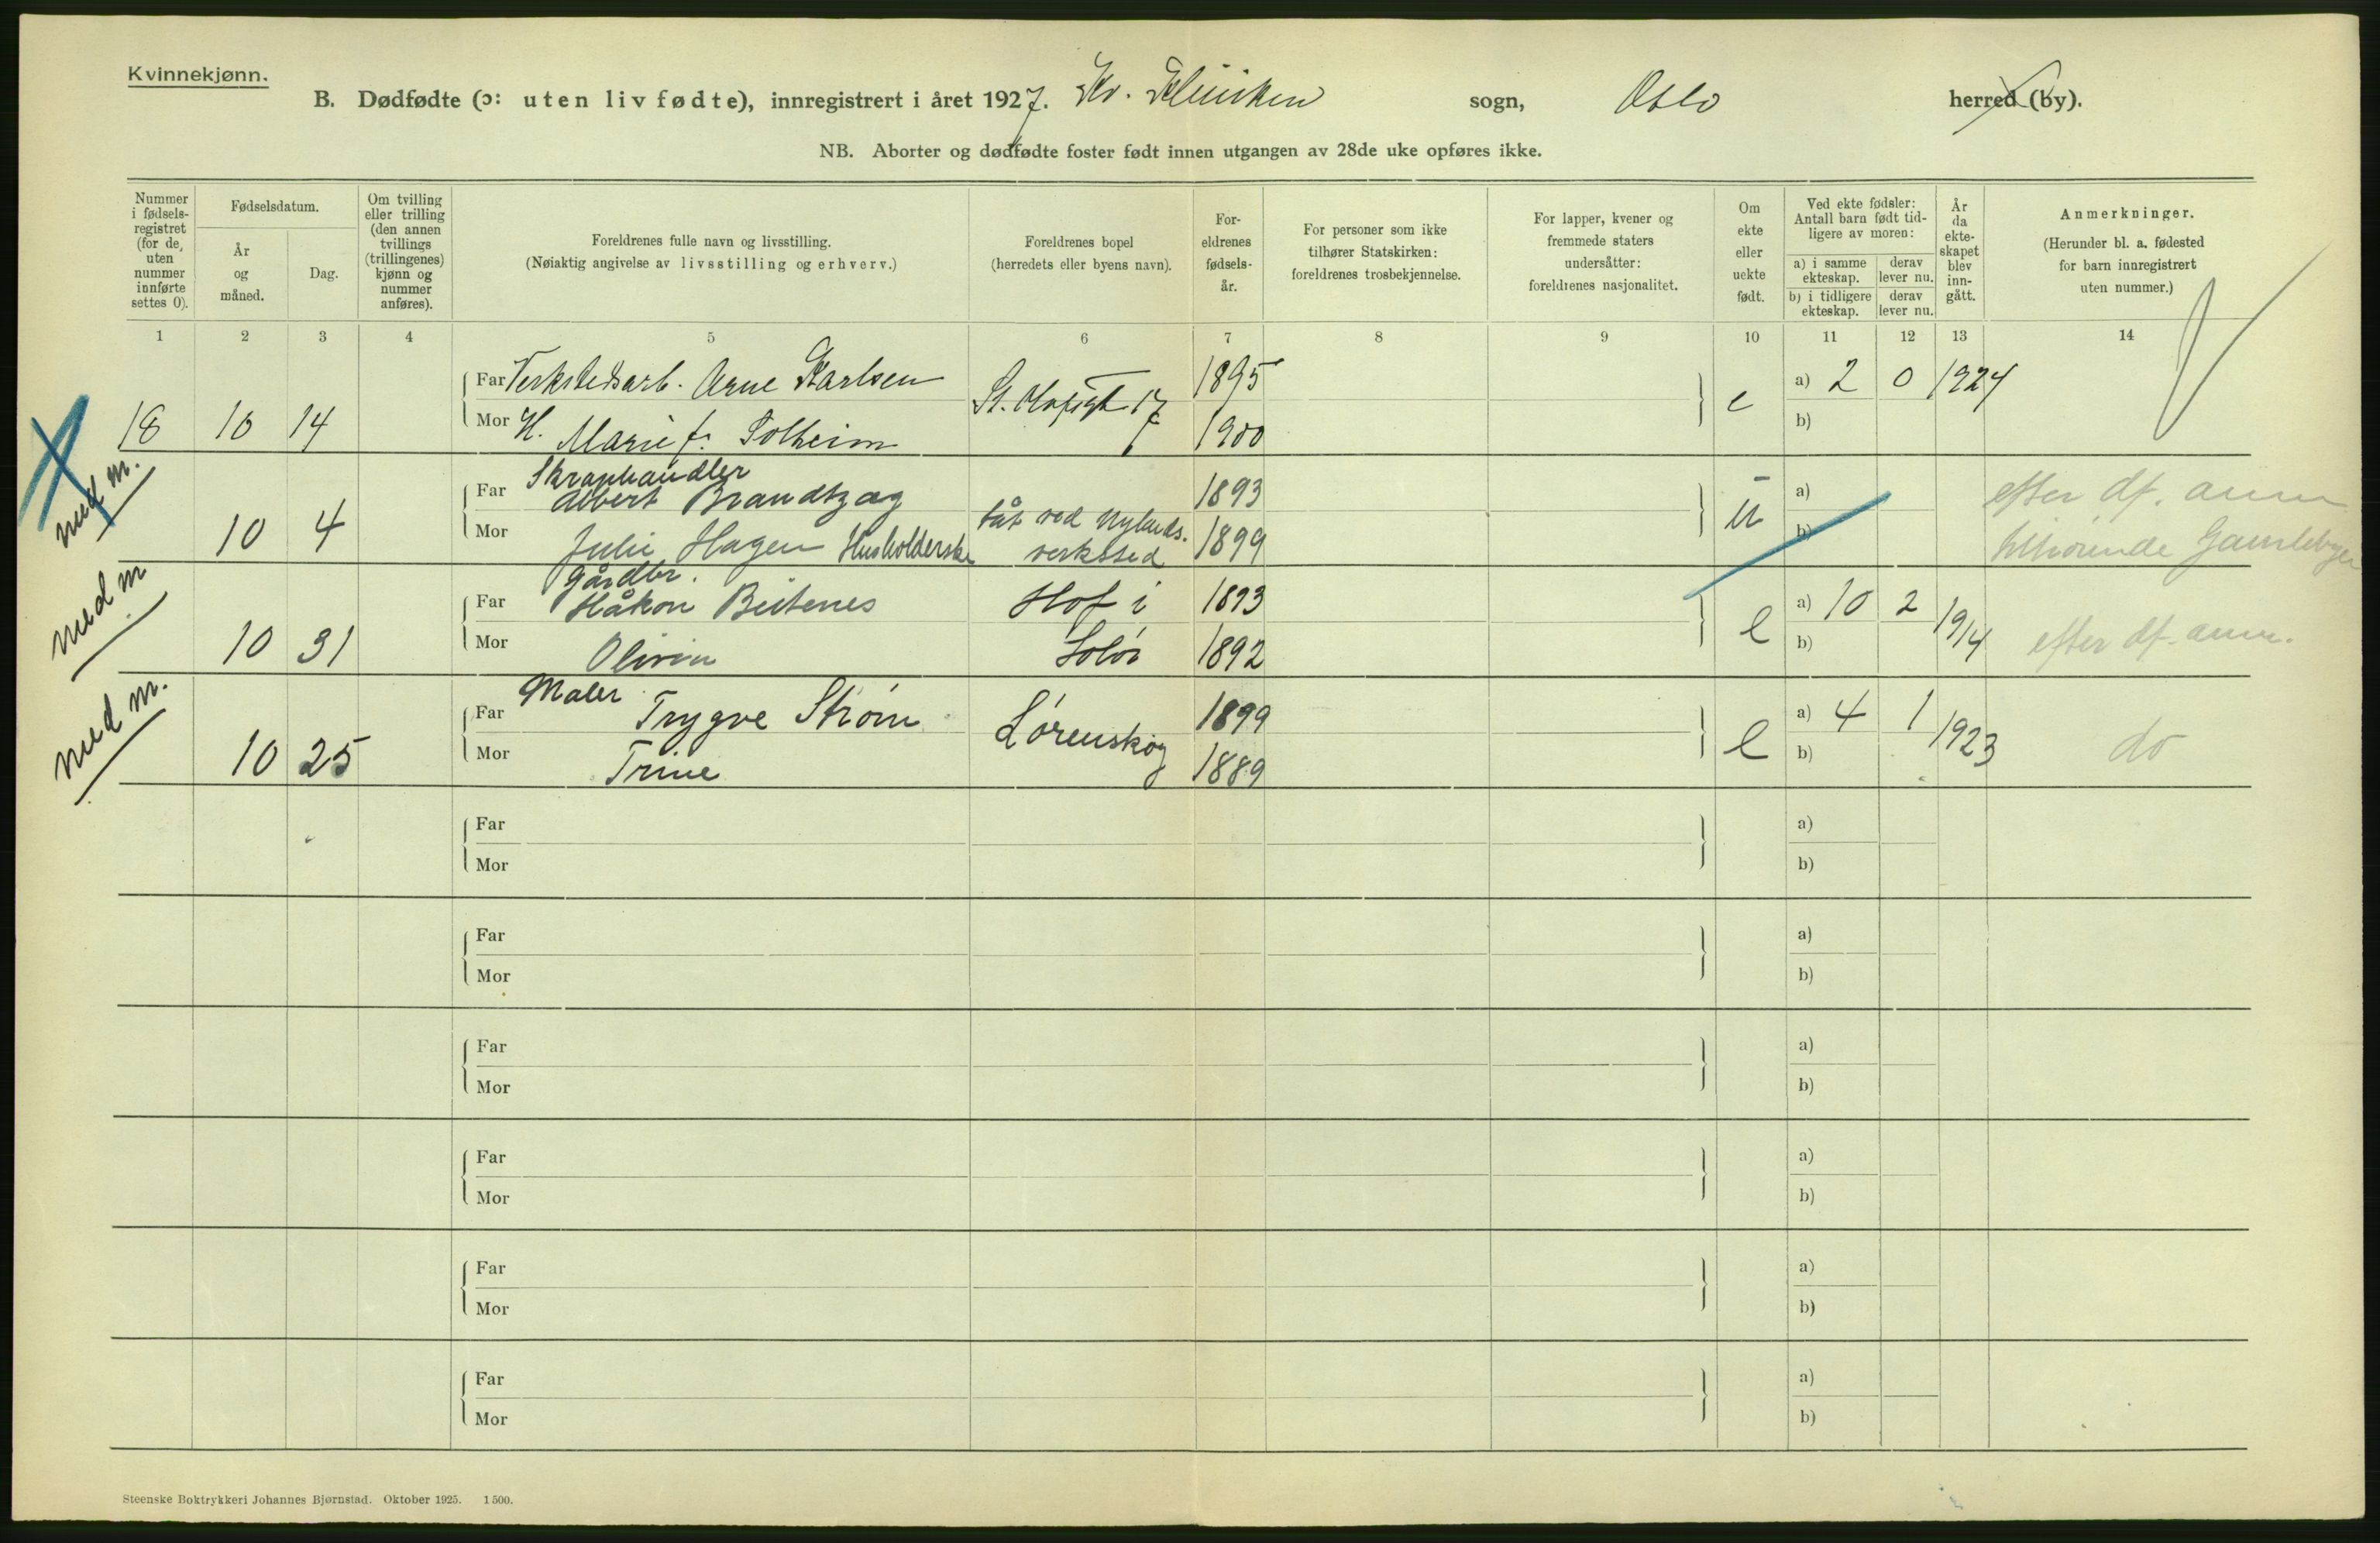 Kvinnekjønn.
B. Dødfødte (ɔ: uten liv fødte), innregistrert i året 1927. Kv. Klinikken sogn, Oslo herred (by).
NB. Aborter og dødfødte foster født innen utgangen av 28de uke opføres ikke.
Nummer i fødsels-registret (for de uten nummer innførte settes 0).
Fødselsdatum.
År og måned.
Dag.
Om tvilling eller trilling (den annen tvillings (trillingenes) kjønn og nummer anføres).
Foreldrenes fulle navn og livsstilling.
(Nøiaktig angivelse av livsstilling og erhverv.)
Foreldrenes bopel
(herredets eller byens navn).
For-eldrenes fødsels-år.
For personer som ikke
tilhører Statskirken:
foreldrenes trosbekjennelse.
For lapper, kvener og
fremmede staters
undersåtter:
foreldrenes nasjonalitet.
Om ekte eller uekte født.
Ved ekte fødsler:
Antall barn født tid-
ligere av moren:
a) i samme ekteskap.
derav lever nu.
b) i tidligere ekteskap.
derav lever nu.
År da ekte-skapet blev inn-gått.
Anmerkninger.
(Herunder bl. a. fødested
for barn innregistrert
uten nummer.)
1 2 3 4 5 6 7 8 9 10 11 12 13 14
18 10 14 Far Verkstedsarb. Arne Karlsen St. Olafsgt 17 1895 e a) 2 0 1924
Mor H. Marie f. Solheim 1900 b)
med m.
10 4 Far Skraphandler
Albert Brandtzæg 1893 u a) efter df. anm
Mor Julie Hagen Husholderske båt ved Nylands. verksted 1899 b) tilhørende Gamlebyen
med m
10 31 Far Gårdbr.
Håkon Beitenes Hof i 1893 e a) 10 2 1914 efter df. anm.
Mor Olivin Solør 1892 b)
med m.
10 25 Far Maler Trygve Strøm Lørenskog 1899 e a) 4 1 1923 do
Mor Trine 1889 b)
Far a)
Mor b)
Far a)
Mor b)
Far a)
Mor b)
Far a)
Mor b)
Far a)
Mor b)
Far a)
Mor b)
Steenske Boktrykkeri Johannes Bjørnstad. Oktober 1925. 1500.